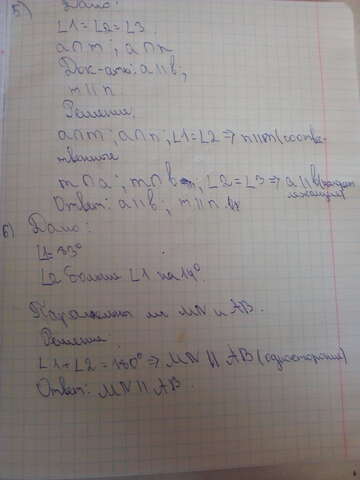 5) Дано:
∠1 = ∠2 = ∠3
a ∩ m ; a ∩ n
Док-ать: a || b ;
m || n
Решение:
a ∩ m ; a ∩ n ; ∠1 = ∠2 => n || m (соответ-
ственные
m ∩ a ; m ∩ b ; ∠2 = ∠3 => a || b
Ответ: a || b ; m || n
6) Дано:
∠1 = 83°
∠2 больше ∠1 на 14°
Параллельны ли MN и AB.
Решение:
∠1 + ∠2 = 180° => MN || AB (односторонние)
Ответ: MN || AB.